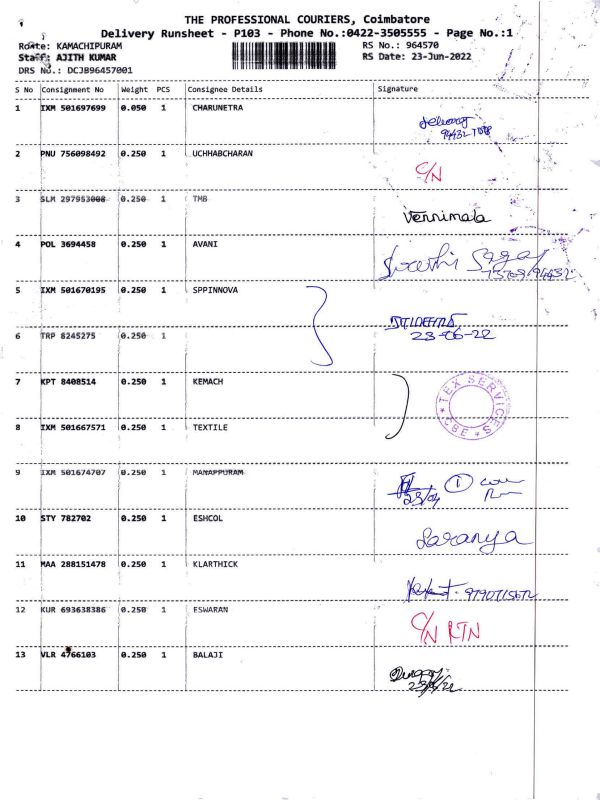 THE PROFESSIONAL COURIERS, Coimbatore
Delivery Runsheet - P103 - Phone No.:0422-3505555 - Page No.:1
Route: KAMACHIPURAM RS No.: 964570
Staff: AJITH KUMAR RS Date: 23-Jun-2022
DRS No.: DCJB96457001
S No Consignment No Weight PCS Consignee Details Signature
1 IXM 501697699 0.050 1 CHARUNETRA
2 PNU 756098492 0.250 1 UCHHABCHARAN
C/N
3 SLM 297953008 0.250 1 TMB
Vennimala
4 POL 3694458 0.250 1 AVANI
5 IXM 501670195 0.250 1 SPPINNOVA
23-06-22
6 TRP 8245275 0.250 1
7 KPT 8408514 0.250 1 KEMACH
TEX SERVICES * CBE *
8 IXM 501667571 0.250 1 TEXTILE
9 IXM 501674707 0.250 1 MANAPPURAM
1
10 STY 782702 0.250 1 ESHCOL
Saranya
11 MAA 288151478 0.250 1 KLARTHICK
12 KUR 693638386 0.250 1 ESWARAN
C/N RTN
13 VLR 4766103 0.250 1 BALAJI